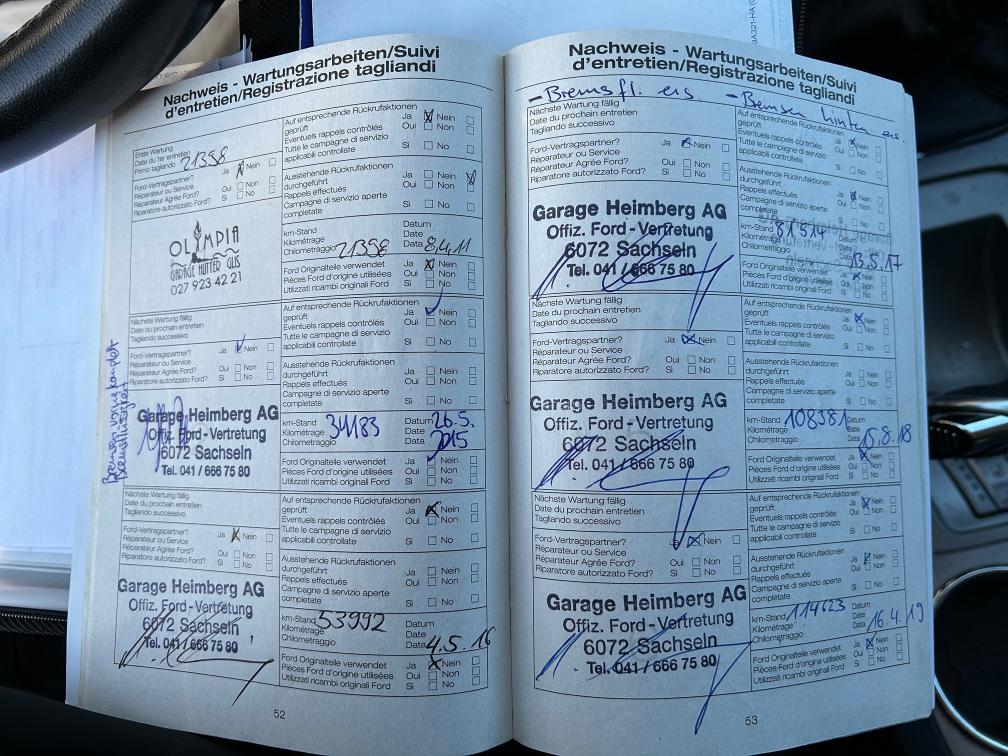 9A321-HA
Nachweis - Wartungsarbeiten/Suivi
d'entretien/Registrazione tagliandi
Erste Wartung
Date du 1er entretien
Primo tagliando 21398
Ford-Vertragspartner? Ja Nein
Réparateur ou Service Oui Non
Réparateur Agrée Ford?
Riparatore autorizzato Ford? Si No
OLYMPIA
GARAGE HUTTER GLIS
027 923 42 21
Auf entsprechende Rückrufaktionen Ja Nein
geprüft Oui Non
Eventuels rappels contrôlés
Tutte le campagne di servizio Si No
applicabili controllate
Ausstehende Rückrufaktionen Ja Nein
durchgeführt Oui Non
Rappels effectués
Campagne di servizio aperte Si No
completate
km-Stand Datum
Kilométrage Date
Chilometraggio 21398 Data 8.4.11
Ford Originalteile verwendet Ja Nein
Pièces Ford d'origine utilisées Oui Non
Utilizzati ricambi originali Ford Si No
Nächste Wartung fällig
Date du prochain entretien
Tagliando successivo
Ford-Vertragspartner? Ja Nein
Réparateur ou Service Oui Non
Réparateur Agrée Ford?
Riparatore autorizzato Ford? Si No
Garage Heimberg AG
Offiz. Ford-Vertretung
6072 Sachseln
Tel. 041 / 666 75 80
Auf entsprechende Rückrufaktionen Ja Nein
geprüft Oui Non
Eventuels rappels contrôlés
Tutte le campagne di servizio Si No
applicabili controllate
Ausstehende Rückrufaktionen Ja Nein
durchgeführt Oui Non
Rappels effectués
Campagne di servizio aperte Si No
completate
km-Stand 34183 Datum 26.5.
Kilométrage Date 2015
Chilometraggio Data
Ford Originalteile verwendet Ja Nein
Pièces Ford d'origine utilisées Oui Non
Utilizzati ricambi originali Ford Si No
Nächste Wartung fällig
Date du prochain entretien
Tagliando successivo
Ford-Vertragspartner? Ja Nein
Réparateur ou Service Oui Non
Réparateur Agrée Ford?
Riparatore autorizzato Ford? Si No
Garage Heimberg AG
Offiz. Ford-Vertretung
6072 Sachseln
Tel. 041 / 666 75 80
Auf entsprechende Rückrufaktionen Ja Nein
geprüft Oui Non
Eventuels rappels contrôlés
Tutte le campagne di servizio Si No
applicabili controllate
Ausstehende Rückrufaktionen Ja Nein
durchgeführt Oui Non
Rappels effectués
Campagne di servizio aperte Si No
completate
km-Stand 53992 Datum
Kilométrage Date
Chilometraggio Data 4.5.16
Ford Originalteile verwendet Ja Nein
Pièces Ford d'origine utilisées Oui Non
Utilizzati ricambi originali Ford Si No
52
Nachweis - Wartungsarbeiten/Suivi
d'entretien/Registrazione tagliandi
- Bremsfl. ers. - Bremsen hinten ers
Nächste Wartung fällig
Date du prochain entretien
Tagliando successivo
Ford-Vertragspartner? Ja Nein
Réparateur ou Service Oui Non
Réparateur Agrée Ford?
Riparatore autorizzato Ford? Si No
Garage Heimberg AG
Offiz. Ford-Vertretung
6072 Sachseln
Tel. 041 / 666 75 80
Auf entsprechende Rückrufaktionen Ja Nein
geprüft Oui Non
Eventuels rappels contrôlés
Tutte le campagne di servizio Si No
applicabili controllate
Ausstehende Rückrufaktionen Ja Nein
durchgeführt Oui Non
Rappels effectués
Campagne di servizio aperte Si No
completate
km-Stand 81514 Datum
Kilométrage Date
Chilometraggio Data 13.5.17
Ford Originalteile verwendet Ja Nein
Pièces Ford d'origine utilisées Oui Non
Utilizzati ricambi originali Ford Si No
Nächste Wartung fällig
Date du prochain entretien
Tagliando successivo
Ford-Vertragspartner? Ja Nein
Réparateur ou Service Oui Non
Réparateur Agrée Ford?
Riparatore autorizzato Ford? Si No
Garage Heimberg AG
Offiz. Ford-Vertretung
6072 Sachseln
Tel. 041 / 666 75 80
Auf entsprechende Rückrufaktionen Ja Nein
geprüft Oui Non
Eventuels rappels contrôlés
Tutte le campagne di servizio Si No
applicabili controllate
Ausstehende Rückrufaktionen Ja Nein
durchgeführt Oui Non
Rappels effectués
Campagne di servizio aperte Si No
completate
km-Stand 108381 Datum
Kilométrage Date
Chilometraggio Data 15.8.18
Ford Originalteile verwendet Ja Nein
Pièces Ford d'origine utilisées Oui Non
Utilizzati ricambi originali Ford Si No
Nächste Wartung fällig
Date du prochain entretien
Tagliando successivo
Ford-Vertragspartner? Ja Nein
Réparateur ou Service Oui Non
Réparateur Agrée Ford?
Riparatore autorizzato Ford? Si No
Garage Heimberg AG
Offiz. Ford-Vertretung
6072 Sachseln
Tel. 041 / 666 75 80
Auf entsprechende Rückrufaktionen Ja Nein
geprüft Oui Non
Eventuels rappels contrôlés
Tutte le campagne di servizio Si No
applicabili controllate
Ausstehende Rückrufaktionen Ja Nein
durchgeführt Oui Non
Rappels effectués
Campagne di servizio aperte Si No
completate
km-Stand 114623 Datum
Kilométrage Date
Chilometraggio Data 16.4.19
Ford Originalteile verwendet Ja Nein
Pièces Ford d'origine utilisées Oui Non
Utilizzati ricambi originali Ford Si No
53